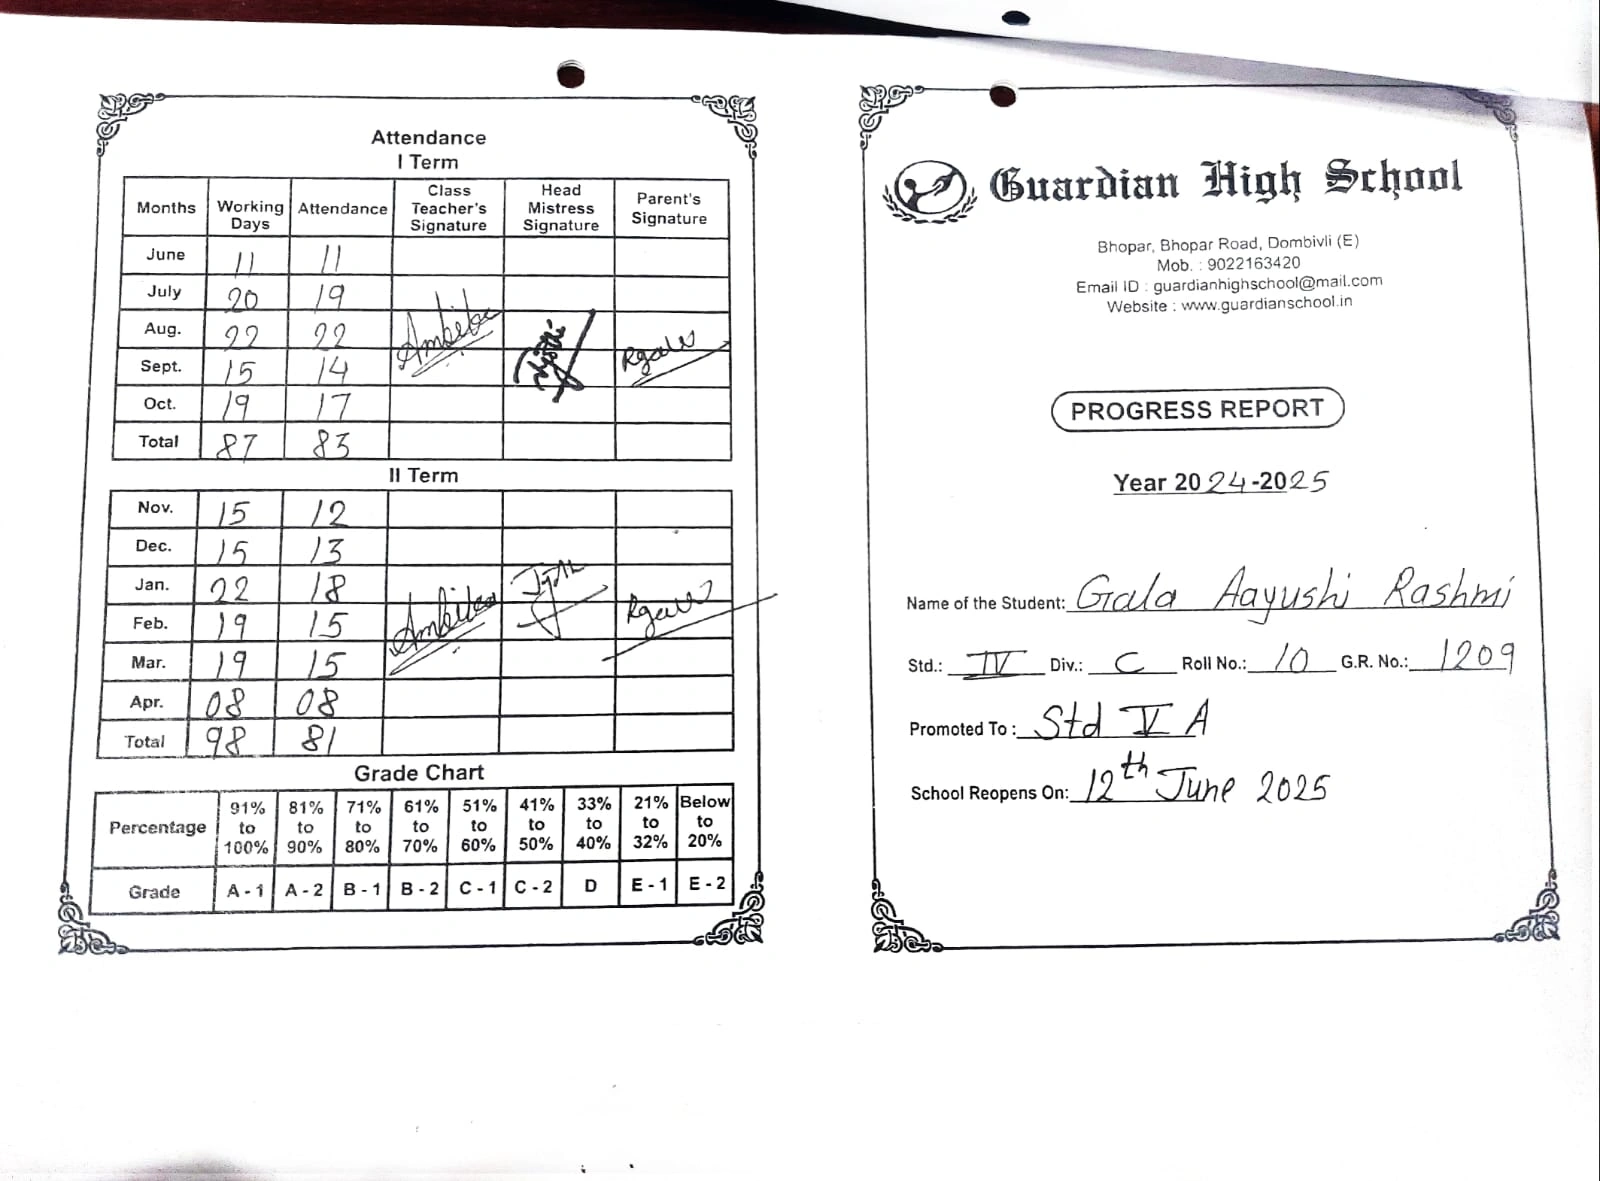 Attendance
I Term
Months Working Days Attendance Class Teacher's Signature Head Mistress Signature Parent's Signature
June 11 11
July 20 19
Aug. 22 22
Sept. 15 14
Oct. 19 17
Total 87 83
Ambika Jyoti Rgala
II Term
Nov. 15 12
Dec. 15 13
Jan. 22 18
Feb. 19 15
Mar. 19 15
Apr. 08 08
Total 98 81
Ambika Jyoti Rgala
Grade Chart
Percentage 91% to 100% 81% to 90% 71% to 80% 61% to 70% 51% to 60% 41% to 50% 33% to 40% 21% to 32% Below to 20%
Grade A - 1 A - 2 B - 1 B - 2 C - 1 C - 2 D E - 1 E - 2
Guardian High School
Bhopar, Bhopar Road, Dombivli (E)
Mob. : 9022163420
Email ID : guardianhighschool@mail.com
Website : www.guardianschool.in
PROGRESS REPORT
Year 2024-2025
Name of the Student: Gala Aayushi Rashmi
Std.: IV Div.: C Roll No.: 10 G.R. No.: 1209
Promoted To : Std V A
School Reopens On: 12th June 2025